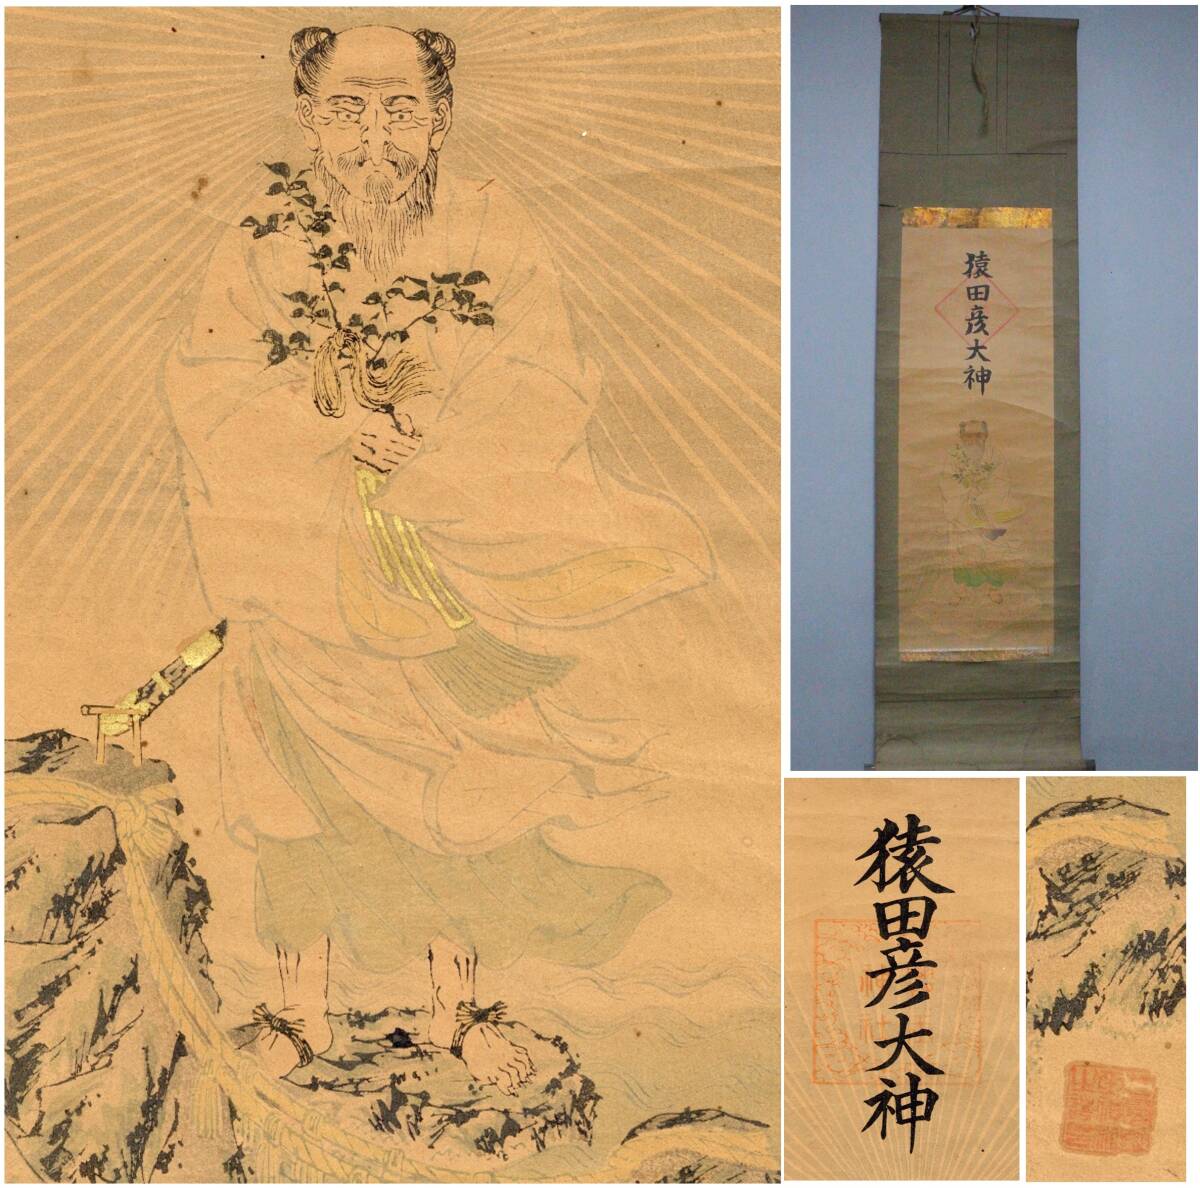 猿田彦大神
猿田彦大神